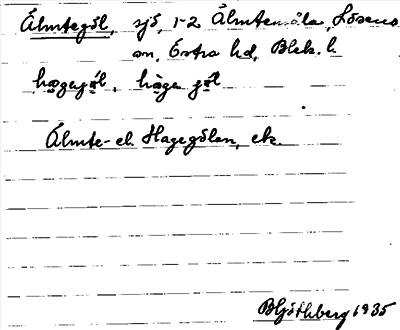 Älmtegöl, sjö, 1-2 Älmtemåla, Lösens
sn, Östra hd, Blek. l.
hagejöl, hage jöl
Älmte- el. Hagegölen, ek.
B Hjöthberg 1935